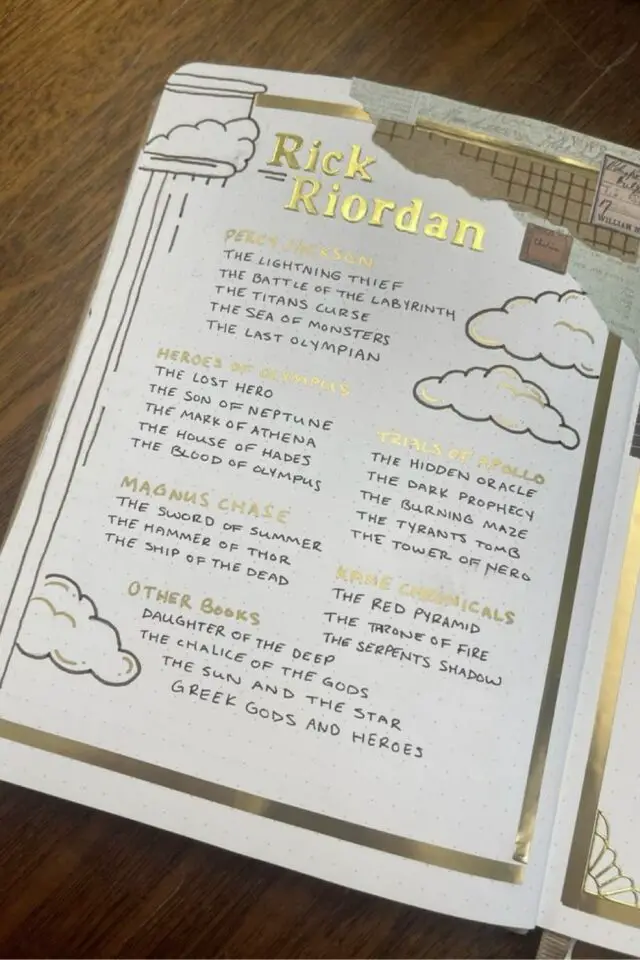 Rick
Riordan
PERCY JACKSON
THE LIGHTNING THIEF
THE BATTLE OF THE LABYRINTH
THE TITANS CURSE
THE SEA OF MONSTERS
THE LAST OLYMPIAN
HEROES OF OLYMPUS
THE LOST HERO
THE SON OF NEPTUNE
THE MARK OF ATHENA
THE HOUSE OF HADES
THE BLOOD OF OLYMPUS
MAGNUS CHASE
THE SWORD OF SUMMER
THE HAMMER OF THOR
THE SHIP OF THE DEAD
TRIALS OF APOLLO
THE HIDDEN ORACLE
THE DARK PROPHECY
THE BURNING MAZE
THE TYRANTS TOMB
THE TOWER OF NERO
KANE CHRONICALS
THE RED PYRAMID
THE THRONE OF FIRE
THE SERPENTS SHADOW
OTHER BOOKS
DAUGHTER OF THE DEEP
THE CHALICE OF THE GODS
THE SUN AND THE STAR
GREEK GODS AND HEROES
17
WILLIAM